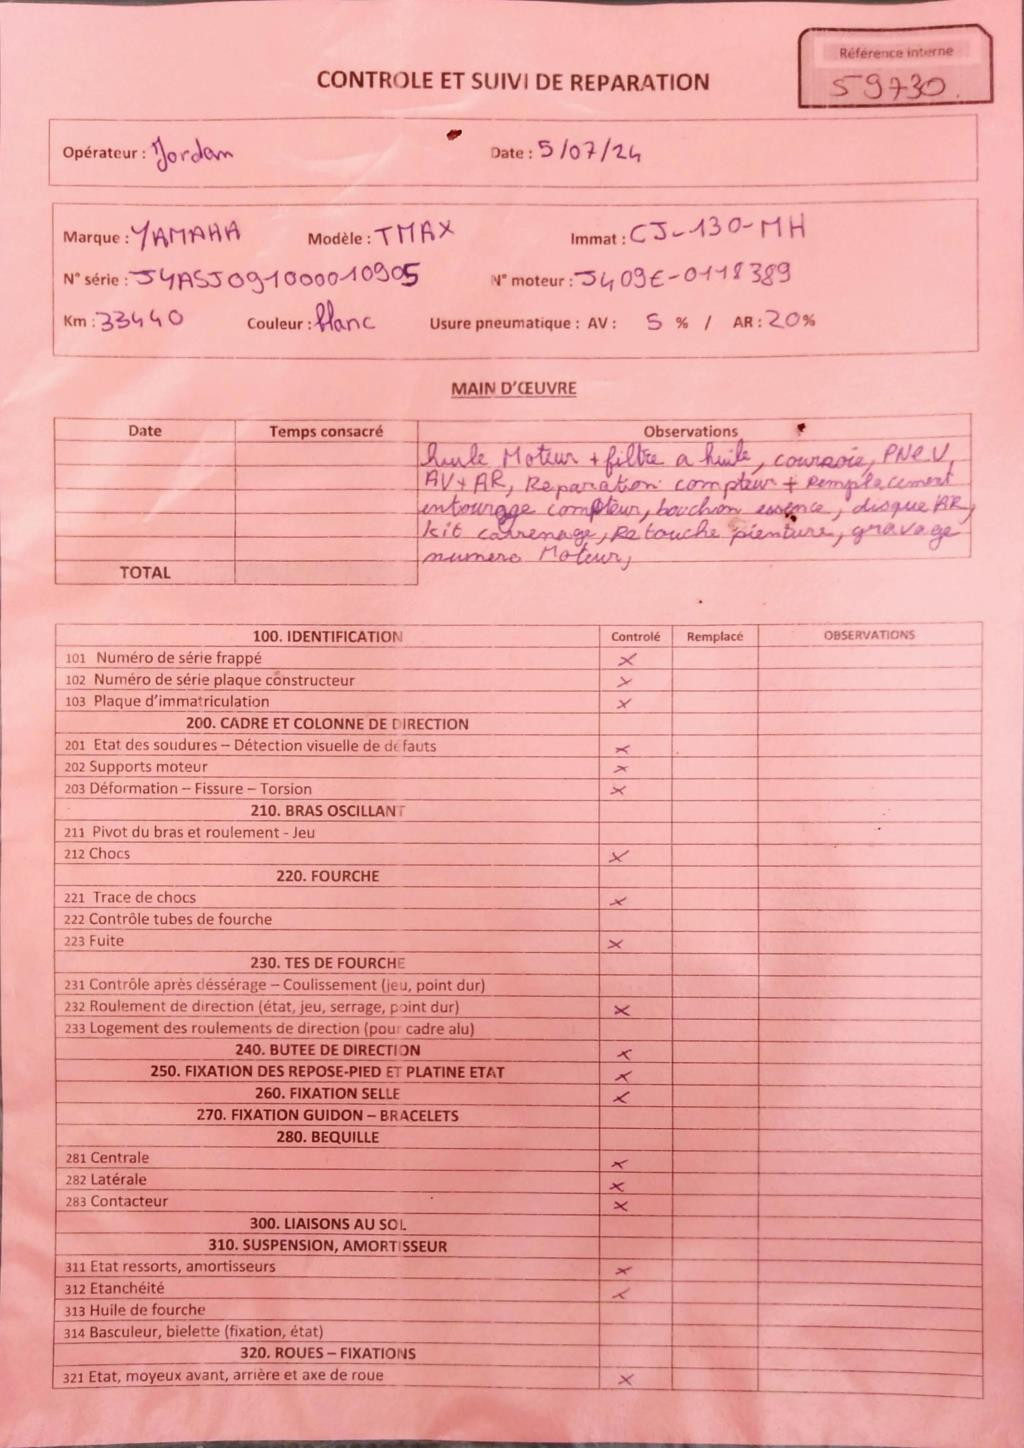 Référence interne
59730.
CONTROLE ET SUIVI DE REPARATION
Opérateur : Jordan Date : 5/07/24
Marque : YAMAHA Modèle : TMAX Immat : CJ-130-MH
N° série : JYASJ091000010905 N° moteur : J409E-0118389
Km : 33440 Couleur : blanc Usure pneumatique : AV : 5 % / AR : 20%
MAIN D'ŒUVRE
Date Temps consacré Observations
huile Moteur + filtre a huile, courroie, PNEU
AV+AR, Reparation compteur + Remplacement
entourage compteur, bouchon essence, disque AR,
kit carrenage, Retouche pienture, gravage
numero Moteur,
TOTAL
100. IDENTIFICATION Controlé Remplacé OBSERVATIONS
101 Numéro de série frappé X
102 Numéro de série plaque constructeur X
103 Plaque d'immatriculation X
200. CADRE ET COLONNE DE DIRECTION
201 Etat des soudures – Détection visuelle de défauts X
202 Supports moteur X
203 Déformation – Fissure – Torsion X
210. BRAS OSCILLANT
211 Pivot du bras et roulement - Jeu
212 Chocs X
220. FOURCHE
221 Trace de chocs X
222 Contrôle tubes de fourche
223 Fuite X
230. TES DE FOURCHE
231 Contrôle après déssérage – Coulissement (jeu, point dur)
232 Roulement de direction (état, jeu, serrage, point dur) X
233 Logement des roulements de direction (pour cadre alu)
240. BUTEE DE DIRECTION X
250. FIXATION DES REPOSE-PIED ET PLATINE ETAT X
260. FIXATION SELLE X
270. FIXATION GUIDON – BRACELETS
280. BEQUILLE
281 Centrale X
282 Latérale X
283 Contacteur X
300. LIAISONS AU SOL
310. SUSPENSION, AMORTISSEUR
311 Etat ressorts, amortisseurs X
312 Etanchéité X
313 Huile de fourche
314 Basculeur, bielette (fixation, état)
320. ROUES – FIXATIONS
321 Etat, moyeux avant, arrière et axe de roue X